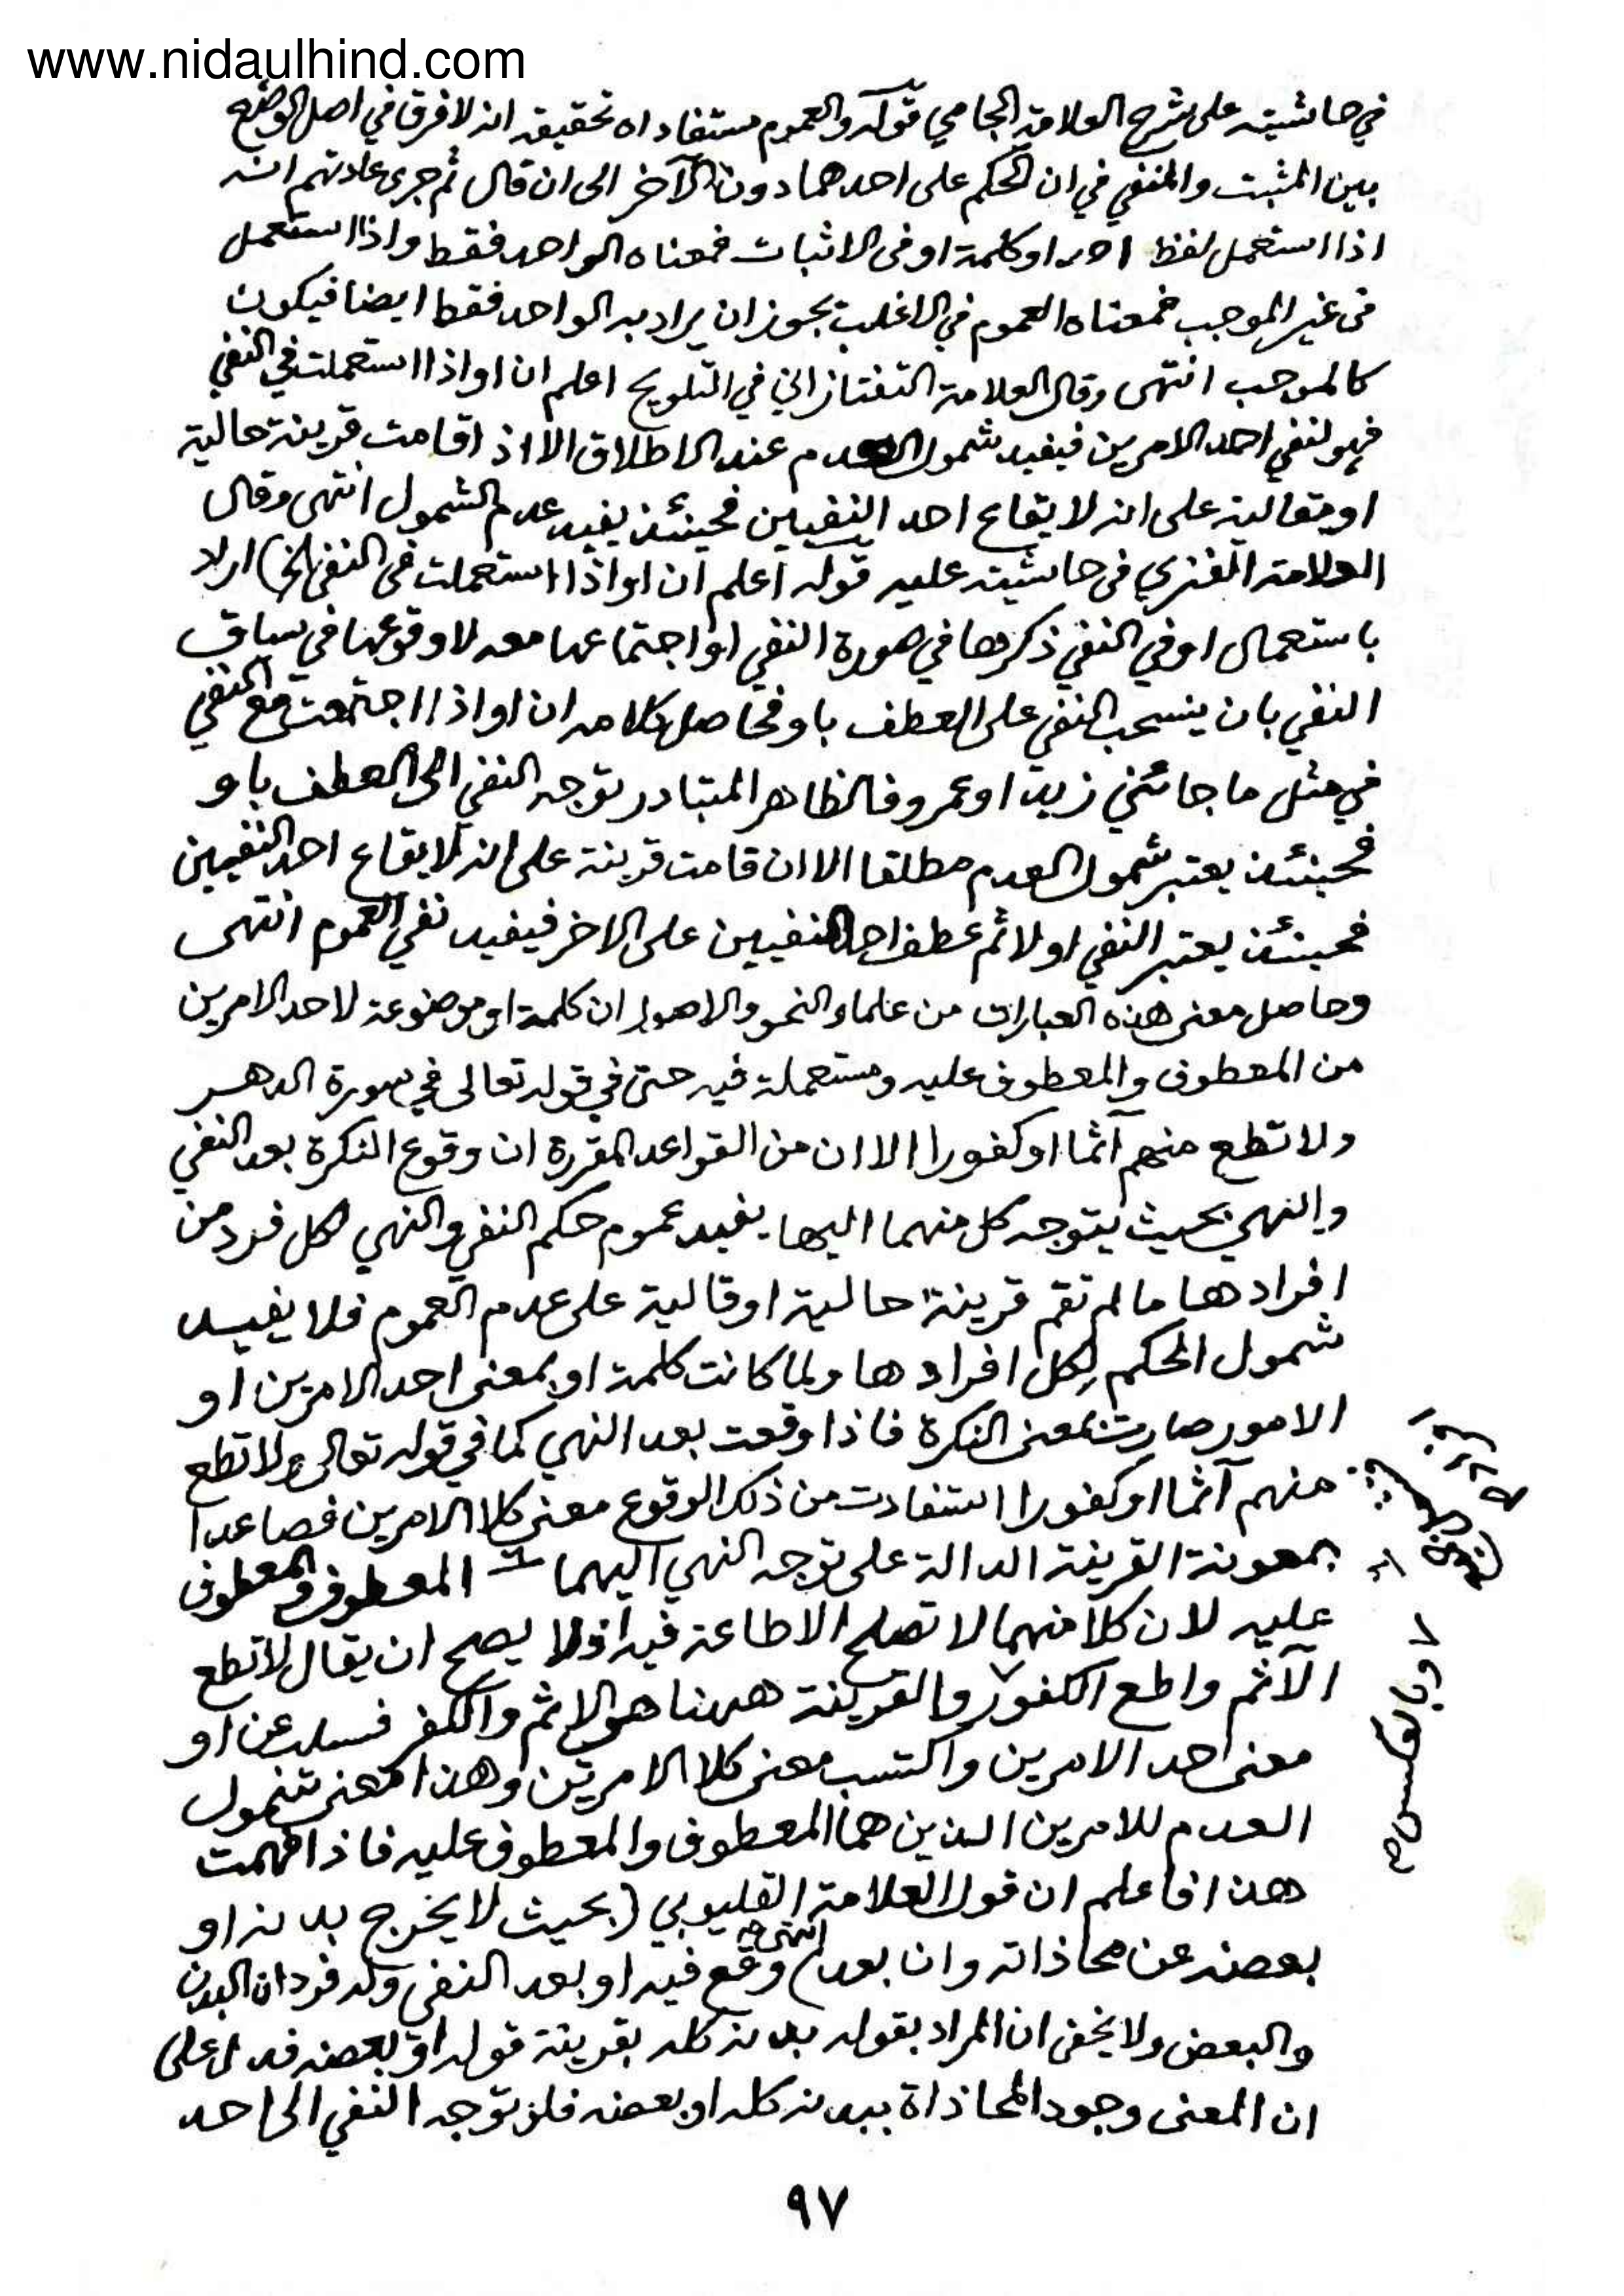 www.nidaulhind.com
في حاشيته على شرح العلامة الجامي قوله والعموم مستفاد اه تحقيقه انه لا فرق في اصل الوضع
بين المثبت والمنفي في ان الحكم على احدهما دون الآخر الى ان قال ثم جرى عادتهم انه
اذا استعمل لفظ احد او كلمة او في الاثبات فمعناه الواحد فقط واذا استعمل
في غير الموجب فمعناه العموم في الاغلب يجوز ان يراد به الواحد فقط ايضا فيكون
كالموجب انتهى وقال العلامة التفتازاني في التلويح اعلم ان او اذا استعملت في النفي
فهو لنفي احد الامرين فيفيد شمول العدم عند الاطلاق الا اذا قامت قرينة حالية
او مقالية على انه لايقاع احد النفيين فحينئذ يفيد عدم الشمول انتهى وقال
العلامة الفنري في حاشيته عليه قوله اعلم ان او اذا استعملت في النفي الخ) اراد
باستعمال او في النفي ذكرها في صورة النفي او اجتماعها معه لا وقوعها في سياق
النفي بان ينسحب النفي على العطف باو فحاصل كلامه ان او اذا اجتمعت مع النفي
في مثل ما جائني زيد او عمرو فالظاهر المتبادر توجه النفي الى العطف باو
فحينئذ يعتبر شمول العدم مطلقا الا ان قامت قرينة على انه لايقاع احد النفيين
فحينئذ يعتبر النفي اولا ثم عطف احد النفيين على الاخر فيفيد نفي العموم انتهى
وحاصل معنى هذه العبارات من علماء النحو والاصول ان كلمة او موضوعة لاحد الامرين
من المعطوف والمعطوف عليه ومستعملة فيه حتى في قوله تعالى في سورة الدهر
ولا تطع منهم آثما او كفورا الا ان من القواعد المقررة ان وقوع النكرة بعد النفي
والنهي بحيث يتوجه كل منهما اليها يفيد عموم حكم النفي والنهي لكل فرد من
افرادها ما لم تقم قرينة حالية او قالية على عدم العموم فلا يفيد
شمول الحكم لكل افرادها ولما كانت كلمة او بمعنى احد الامرين او
الامور صارت بمعنى النكرة فاذا وقعت بعد النهي كما في قوله تعالى ولا تطع
منهم آثما او كفورا استفادت من ذلك الوقوع معنى كلا الامرين فصاعدا
بمعونة القرينة الدالة على توجه النهي اليهما المعطوف والمعطوف
عليه لان كلا منهما لا تصلح الاطاعة فيه اذ لا يصح ان يقال لا تطع
الآثم واطع الكفور والقرينة ههنا هو الاثم والكفر فسلب عن او
معنى احد الامرين واكتسب معنى كلا الامرين وهذا معنى شمول
العدم للامرين الذين هما المعطوف والمعطوف عليه فاذا فهمت
هذا فاعلم ان قول العلامة القليوبي (بحيث لا يخرج بدنه او
بعضه عن محاذاته وان بعد) انتهى وقع فيه او بعد النفي وله فردان البدن
والبعض ولا يخفى ان المراد بقوله بدنه كله بقرينة قوله او بعضه فدل على
ان المعنى وجود المحاذاة ببدنه كله او بعضه فلو توجه النفي الى احد
او بالعكس صح
٩٧